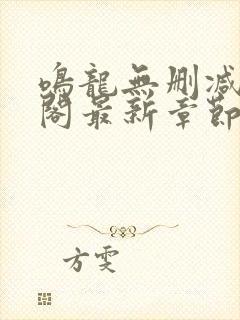 鳴龍無删减
閣最新章節
方雯